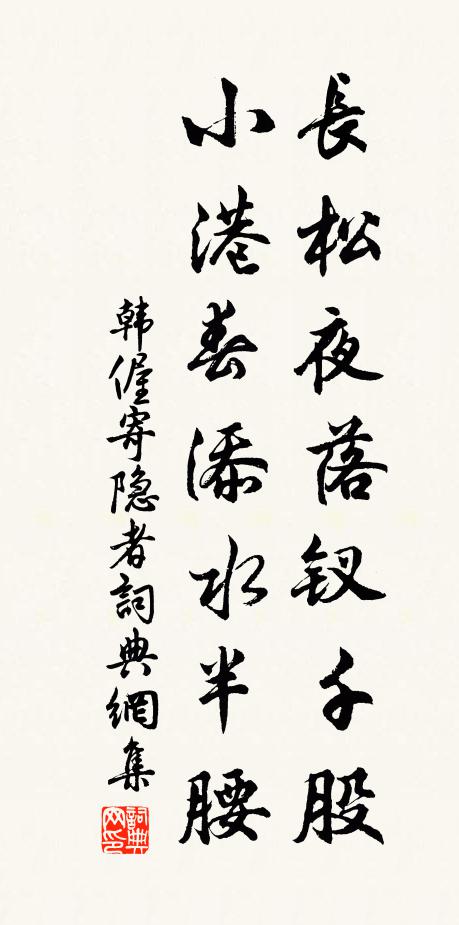 長松夜落钗千股
小港春添水半腰
韩偓寄隐者詞典網集
詞典网印